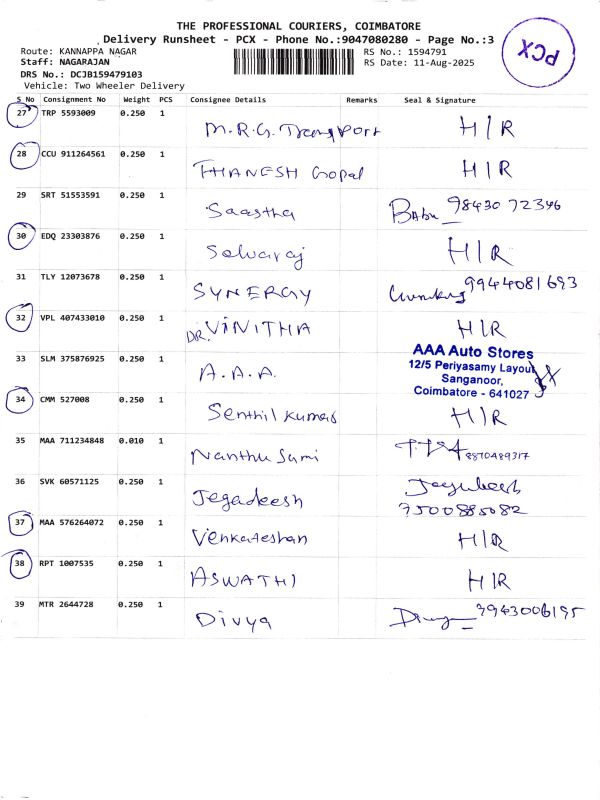 THE PROFESSIONAL COURIERS, COIMBATORE
Delivery Runsheet - PCX - Phone No.:9047080280 - Page No.:3
PCX
Route: KANNAPPA NAGAR RS No.: 1594791
Staff: NAGARAJAN RS Date: 11-Aug-2025
DRS No.: DCJB159479103
Vehicle: Two Wheeler Delivery
S No Consignment No Weight PCS Consignee Details Remarks Seal & Signature
27 TRP 5593009 0.250 1
M.R.G. Transport H/R
28 CCU 911264561 0.250 1
THANESH Gopal H/R
29 SRT 51553591 0.250 1
Saastha Babu 98430 72346
30 EDQ 23303876 0.250 1
Selvaraj H/R
31 TLY 12073678 0.250 1
SYNERGY 9944081693
32 VPL 407433010 0.250 1
DR. VINITHA H/R
33 SLM 375876925 0.250 1
A.A.A. AAA Auto Stores
12/5 Periyasamy Layout
Sanganoor,
Coimbatore - 641027
34 CMM 527008 0.250 1
Senthil Kumar H/R
35 MAA 711234848 0.010 1
Nanthu Sumi 8870489317
36 SVK 60571125 0.250 1
Jegadeesh
7500885082
37 MAA 576264072 0.250 1
Venkateshan H/R
38 RPT 1007535 0.250 1
ASWATHI H/R
39 MTR 2644728 0.250 1
Divya 7943006195